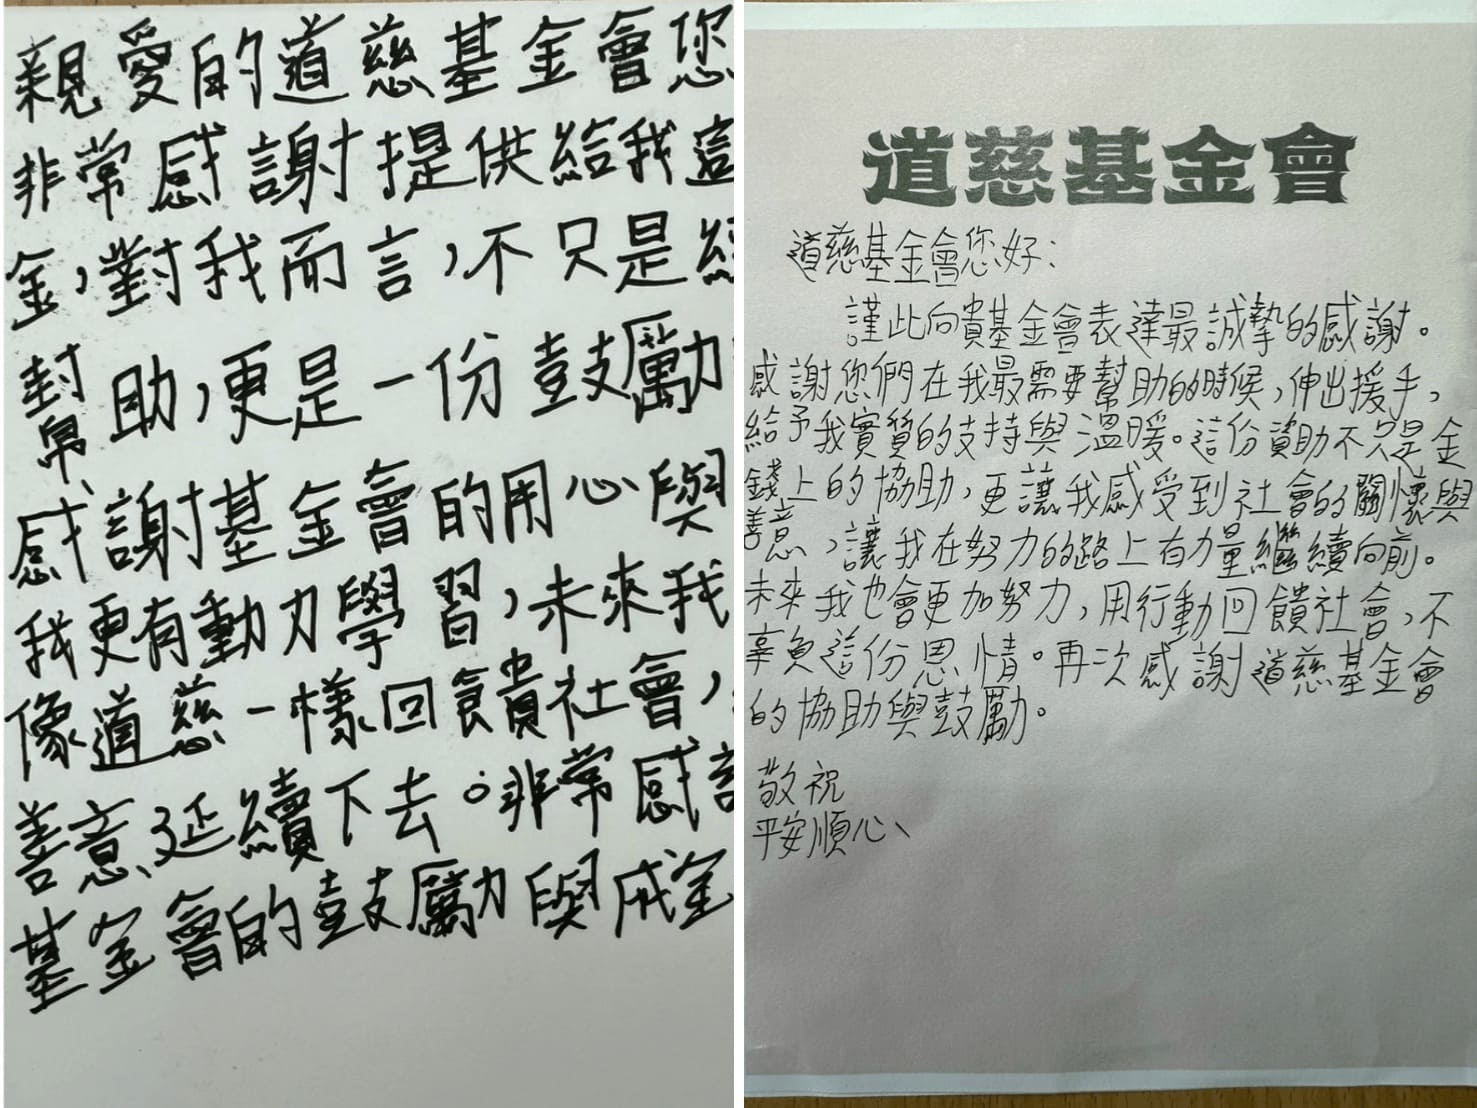 親愛的道慈基金會您
非常感謝提供給我這
金,對我而言,不只是經
幫助,更是一份鼓勵
感謝基金會的用心與
我更有動力學習,未來我
像道慈一樣回饋社會,
善意延續下去。非常感謝
基金會的鼓勵與成全
道慈基金會
道慈基金會您好:
謹此向貴基金會表達最誠摯的感謝。
感謝您們在我最需要幫助的時候,伸出援手,
給予我實質的支持與溫暖。這份資助不只是金
錢上的協助,更讓我感受到社會的關懷與
善意,讓我在努力的路上有力量繼續向前。
未來我也會更加努力,用行動回饋社會,不
辜負這份恩情。再次感謝道慈基金會
的協助與鼓勵。
敬祝
平安順心、